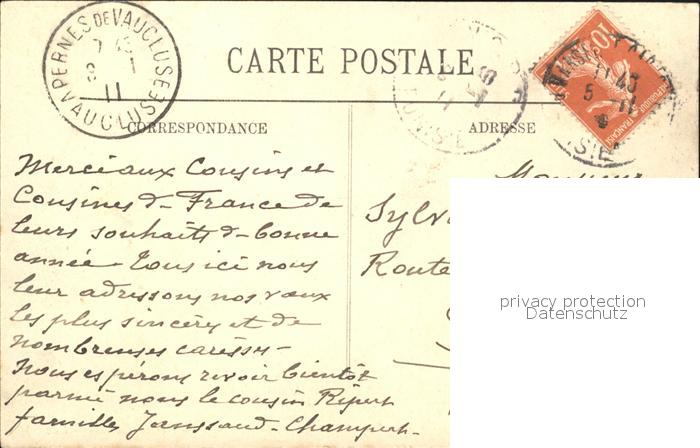 PERNES DE VAUCLUSE
VAUCLUSE
11
CARTE POSTALE
CORRESPONDANCE
ADRESSE
Merci aux Cousins et
Cousines de France de
leurs souhaits de bonne
année. Tous ici nous
leur adressons nos vœux
les plus sincères et de
nombreuses caresses-
Nous espérons revoir bientôt
parmi nous le cousin Ripert
familles Janssaud-Champert-
Monsieur
Sylv
Route
privacy protection
Datenschutz